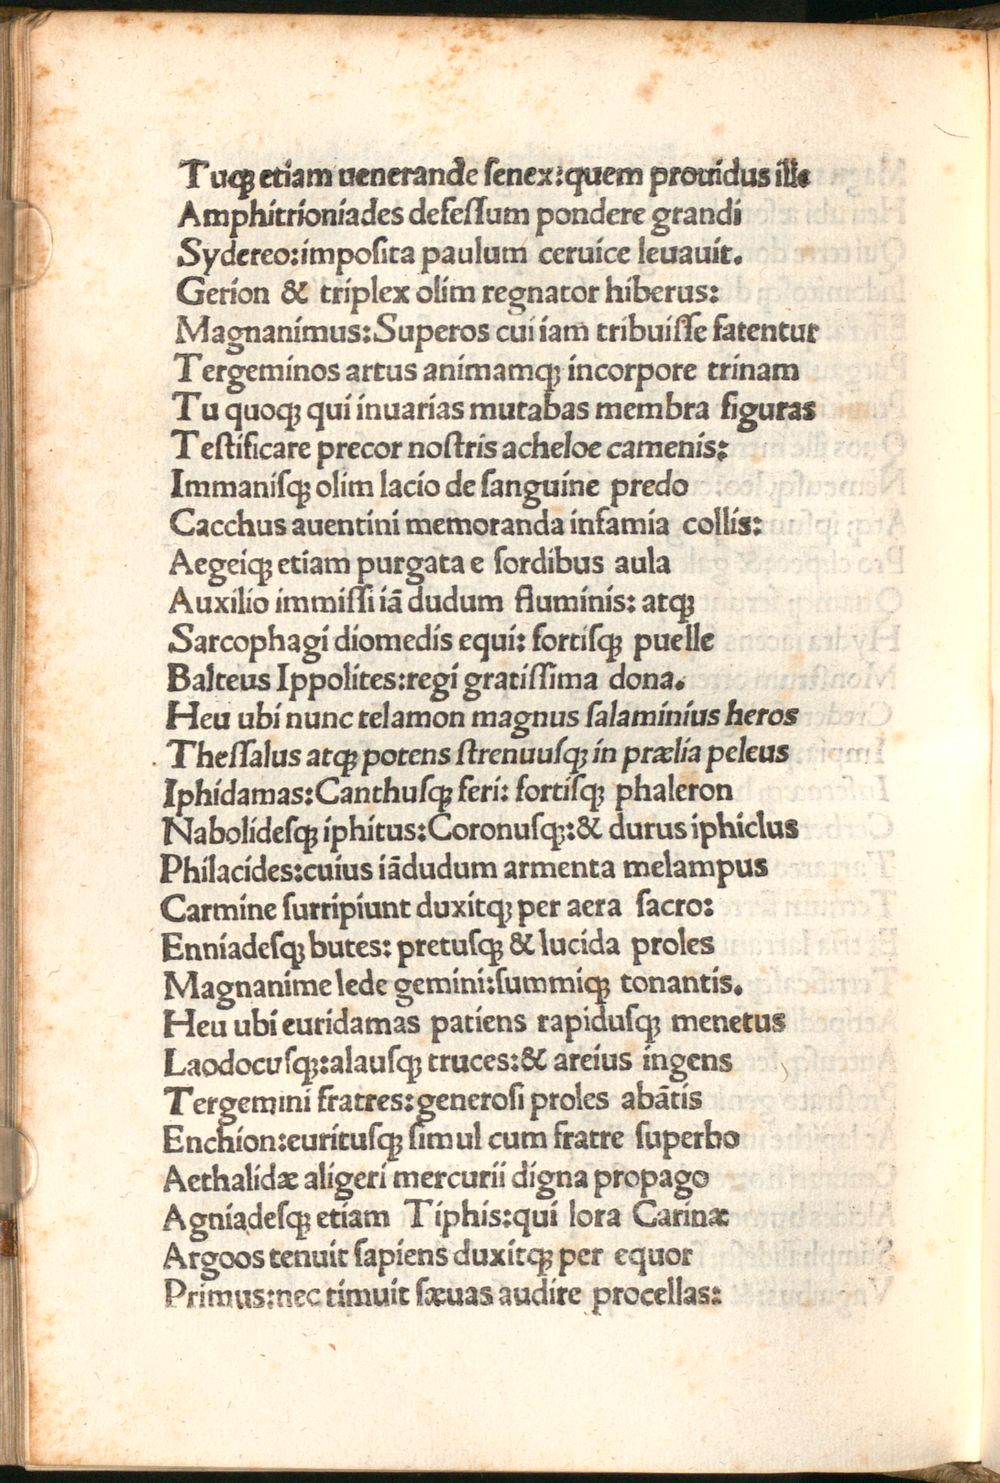 Tuqꝫ etiam uenerande ſenex:quem prouidus ille
Amphitrioniades defeſſum pondere grandi
Sydereo:impoſita paulum ceruice leuauit.
Gerion & triplex olim regnator hiberus:
Magnanimus:Superos cui iam tribuiſſe fatentur
Tergeminos artus animamqꝫ incorpore trinam
Tu quoqꝫ qui inuarias mutabas membra figuras
Teſtificare precor noſtris acheloe camenis:
Immaniſqꝫ olim lacio de ſanguine predo
Cacchus auentini memoranda infamia collis:
Aegeiqꝫ etiam purgata e ſordibus aula
Auxilio immiſſi iā dudum fluminis: atqꝫ
Sarcophagi diomedis equi: fortiſqꝫ puelle
Balteus Ippolites:regi gratiſſima dona.
Heu ubi nunc telamon magnus ſalaminius heros
Theſſalus atqꝫ potens ſtrenuuſqꝫ in prælia peleus
Iphidamas:Canthuſqꝫ feri: fortiſqꝫ phaleron
Nabolideſqꝫ iphitus:Coronuſqꝫ:& durus iphiclus
Philacides:cuius iādudum armenta melampus
Carmine ſurripiunt duxitqꝫ per aera ſacro:
Enniadeſqꝫ butes: pretuſqꝫ & lucida proles
Magnanime lede gemini:ſummiqꝫ tonantis.
Heu ubi euridamas patiens rapiduſqꝫ menetus
Laodocuſqꝫ:alauſqꝫ truces:& areius ingens
Tergemini fratres:generoſi proles abātis
Enchion:eurituſqꝫ ſimul cum fratre ſuperbo
Aethalidæ aligeri mercurii digna propago
Agniadeſqꝫ etiam Tiphis:qui lora Carinæ
Argoos tenuit ſapiens duxitqꝫ per equor
Primus:nec timuit ſæuas audire procellas: